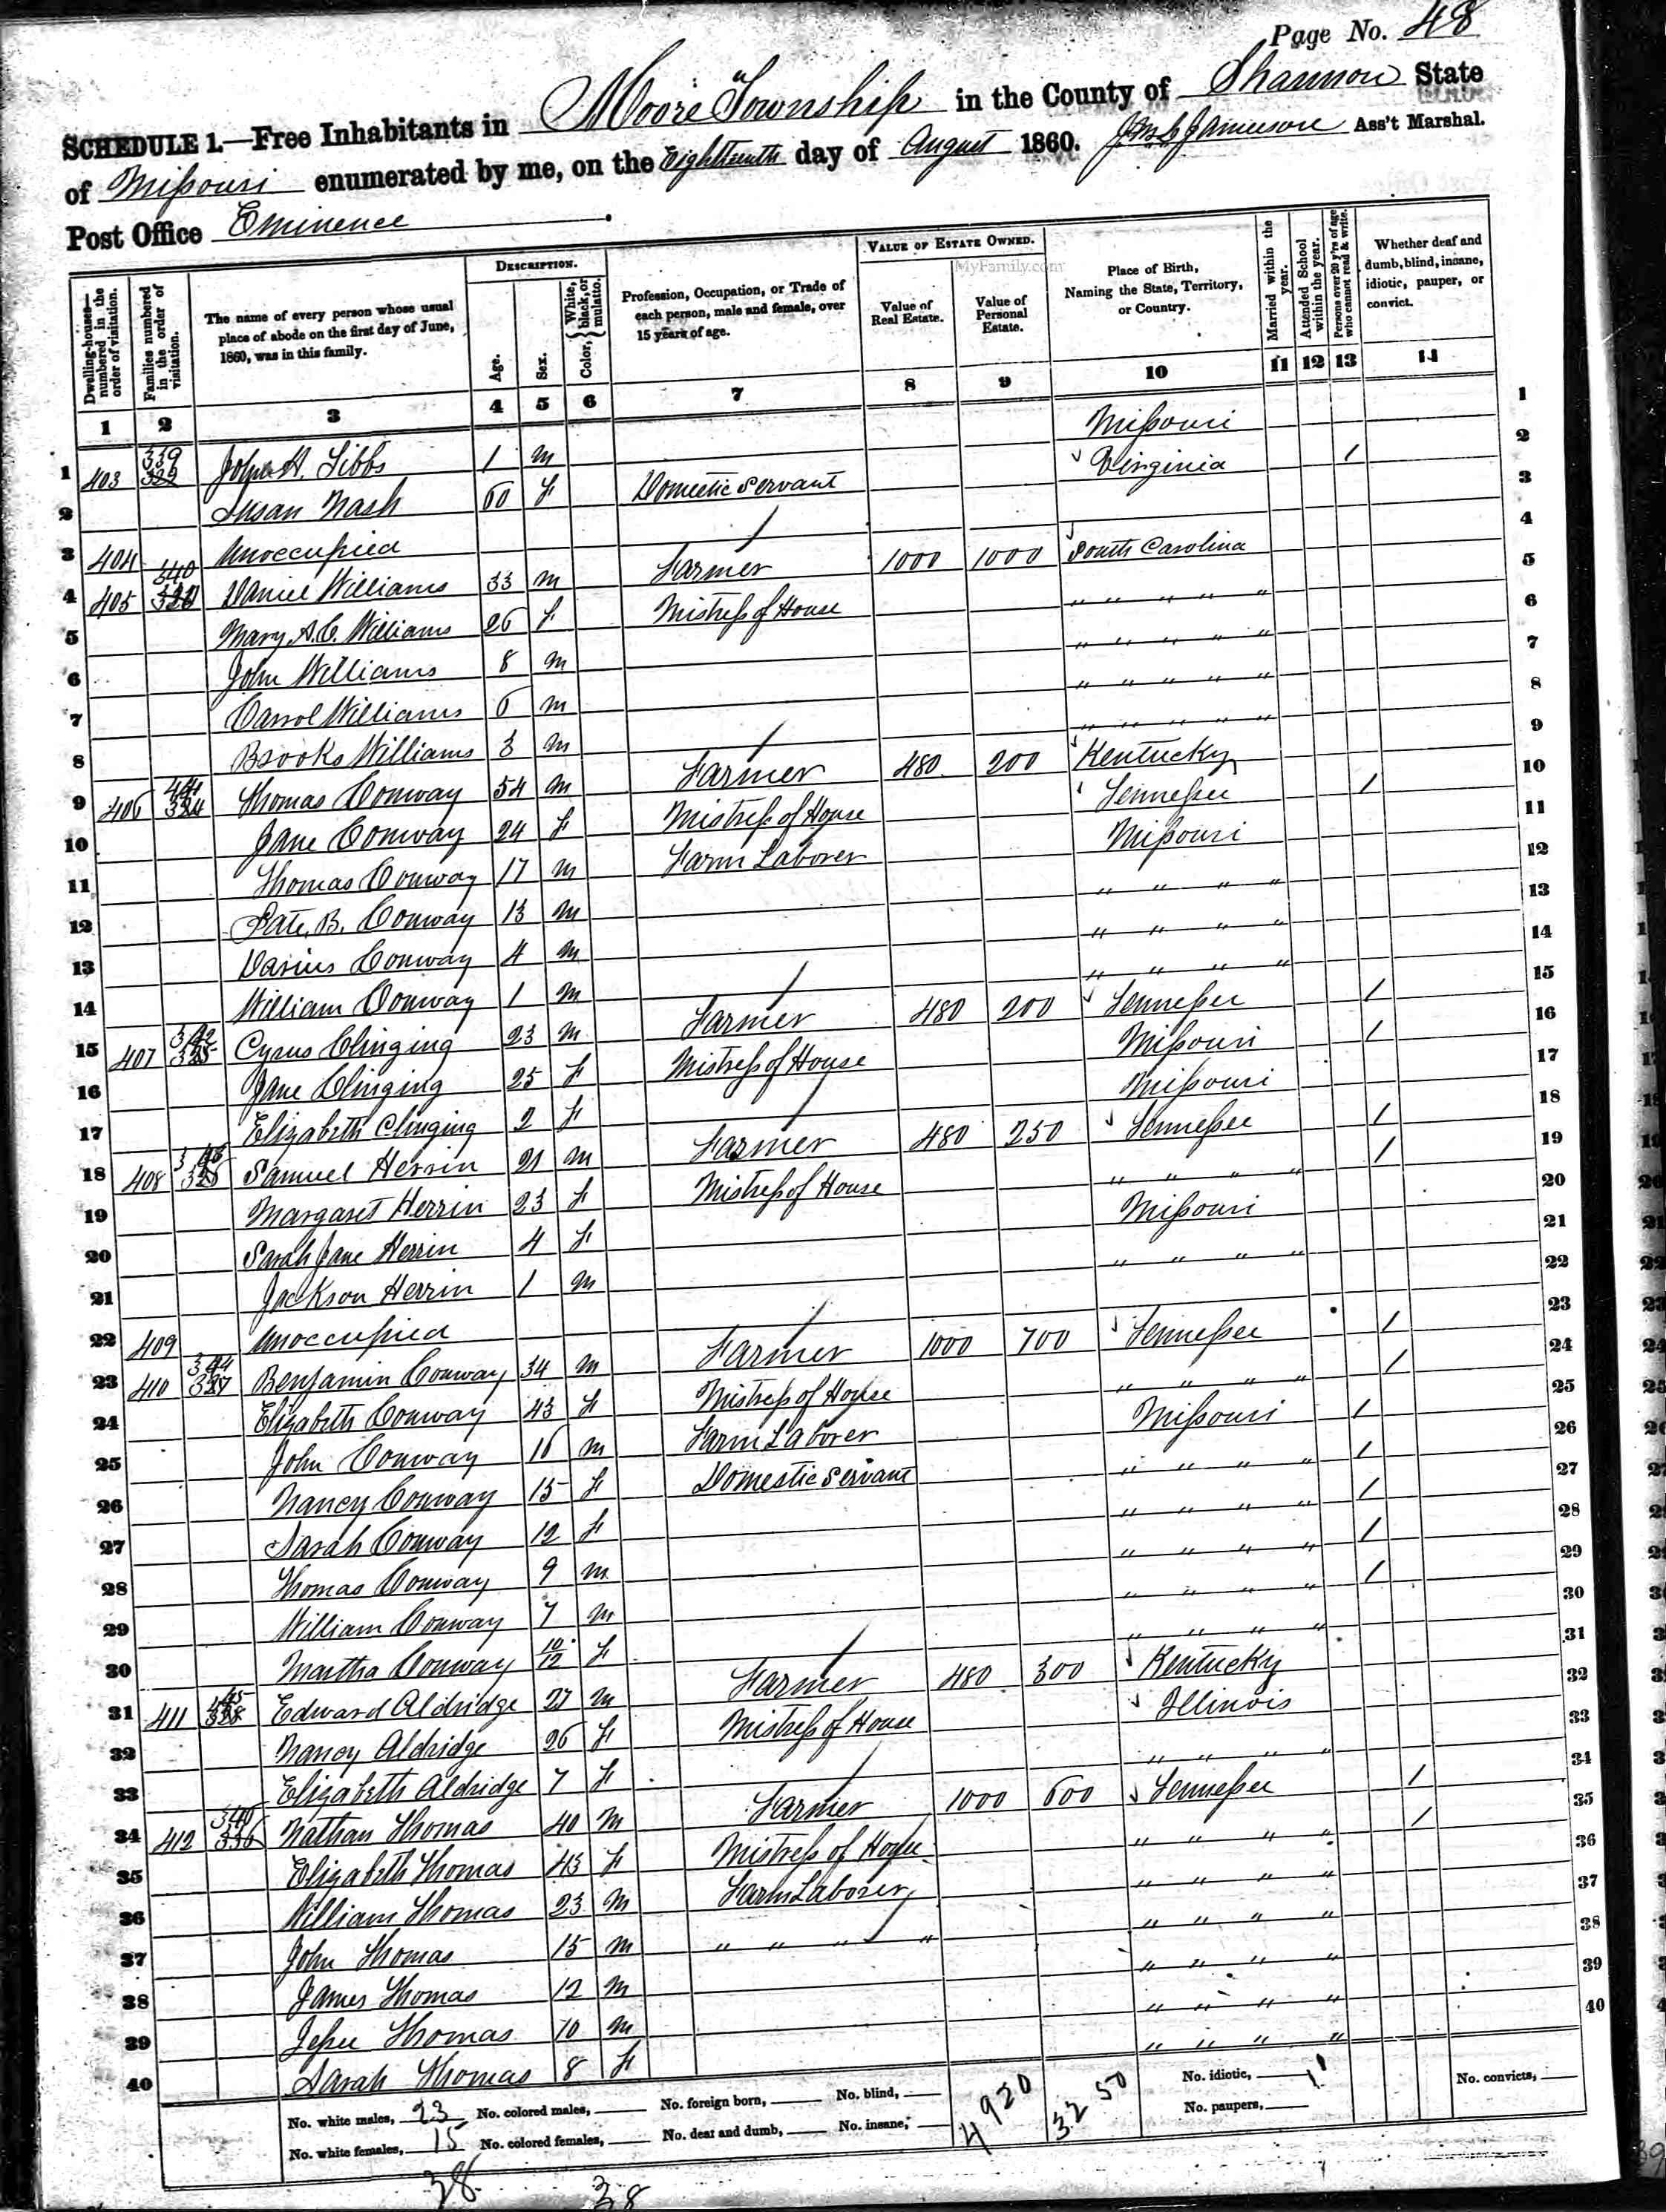 Page No. 48
SCHEDULE 1.—Free Inhabitants in Moore Township in the County of Shannon State
of Missouri enumerated by me, on the Eighteenth day of August 1860. Jamieson Ass't Marshal.
Post Office Eminence.
Dwelling-houses—numbered in the order of visitation.
Families numbered in the order of visitation.
The name of every person whose usual place of abode on the first day of June, 1860, was in this family.
DESCRIPTION.
Age.
Sex.
Color, { White, black, or mulatto.
Profession, Occupation, or Trade of each person, male and female, over 15 years of age.
VALUE OF ESTATE OWNED.
MyFamily.com
Value of Real Estate.
Value of Personal Estate.
Place of Birth, Naming the State, Territory, or Country.
Married within the year.
Attended School within the year.
Persons over 20 y'rs of age who cannot read & write.
Whether deaf and dumb, blind, insane, idiotic, pauper, or convict.
1 2 3 4 5 6 7 8 9 10 11 12 13 14
1 403 339 John H. Tibbs 1 m Missouri 1
2 Susan Nash 60 f Domestic Servant Virginia / 2
3 404 Unoccupied 3
4 405 340 Daniel Williams 33 m Farmer 1000 1000 South Carolina 4
5 Mary A. C. Williams 26 f Mistress of House " " " " " 5
6 John Williams 8 m " " " " " 6
7 Carrol Williams 6 m " " " " " 7
8 Brooks Williams 3 m " " " " " 8
9 406 324 Thomas Conway 54 m Farmer 480 200 Kentucky 9
10 Jane Conway 24 f Mistress of House Tennessee / 10
11 Thomas Conway 17 m Farm Laborer Missouri 11
12 Pate. B. Conway 13 m " " " " 12
13 Darius Conway 4 m " " " " 13
14 William Conway 1 m " " " " 14
15 407 342 325 Cyrus Clinging 23 m Farmer 480 200 Tennessee / 15
16 Jane Clinging 25 f Mistress of House Missouri / 16
17 Elizabeth Clinging 2 f Missouri 17
18 408 326 Samuel Herrin 21 m Farmer 480 250 Tennessee / 18
19 Margaret Herrin 23 f Mistress of House " " " " / 19
20 Sarah Jane Herrin 4 f Missouri 20
21 Jackson Herrin 1 m " " " " 21
22 409 Unoccupied 22
23 410 344 327 Benjamin Conway 34 m Farmer 1000 700 Tennessee / 23
24 Elizabeth Conway 43 f Mistress of House " " " " / 24
25 John Conway 16 m Farm Laborer Missouri / 25
26 Nancy Conway 15 f Domestic Servant " " " " / 26
27 Sarah Conway 12 f " " " " / 27
28 Thomas Conway 9 m " " " " / 28
29 William Conway 7 m " " " " / 29
30 Martha Conway 10/12 f " " " " 30
31 411 328 Edward Aldridge 27 m Farmer 480 300 Kentucky 31
32 Nancy Aldridge 26 f Mistress of House Illinois 32
33 Elizabeth Aldridge 7 f " " " " 33
34 412 346 Nathan Thomas 40 m Farmer 1000 600 Tennessee / 34
35 Elizabeth Thomas 43 f Mistress of House " " " " / 35
36 William Thomas 23 m Farm Laborer " " " " 36
37 John Thomas 15 m " " " " " " " " 37
38 James Thomas 12 m " " " " 38
39 Jesse Thomas 10 m " " " " 39
40 Sarah Thomas 8 f " " " " 40
No. white males, 23 No. colored males, No. foreign born, No. blind, 4920 3250 No. idiotic, No. convicts,
No. white females, 15 No. colored females, No. deaf and dumb, No. insane, No. paupers,
38 38